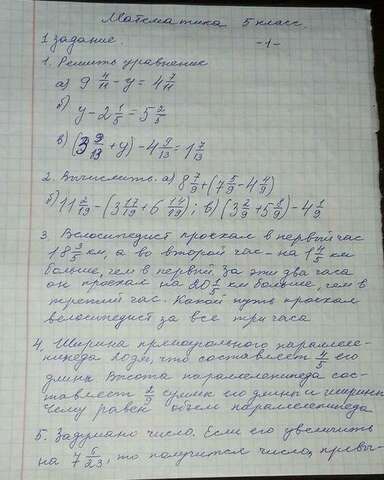 Математика 5 класс.
1 задание. -1-
1. Решить уравнение
а) 9 4/11 - у = 4 7/11
б) у - 2 1/5 = 5 2/3
в) (3 9/13 + у) - 4 9/13 = 1 7/13
2. Вычислить. а) 8 7/9 + (7 5/9 - 4 4/9)
б) 11 2/19 - (3 17/19 + 6 14/19); в) (3 2/9 + 5 1/9) - 4 1/9
3. Велосипедист проехал в первый час
18 3/5 км, а во второй час - на 1 4/5 км
больше, чем в первый. За эти два часа
он проехал на 20 1/5 км больше, чем в
третий час. Какой путь проехал
велосипедист за все три часа
4. Ширина прямоугольного параллеле-
пипеда 20 дм, что составляет 4/5 его
длины Высота параллелепипеда сос-
тавляет 2/9 суммы его длины и ширины
Чему равен объем параллелепипеда
5. Задумано число. Если его увеличить
на 7 5/23, то получится число, превы-